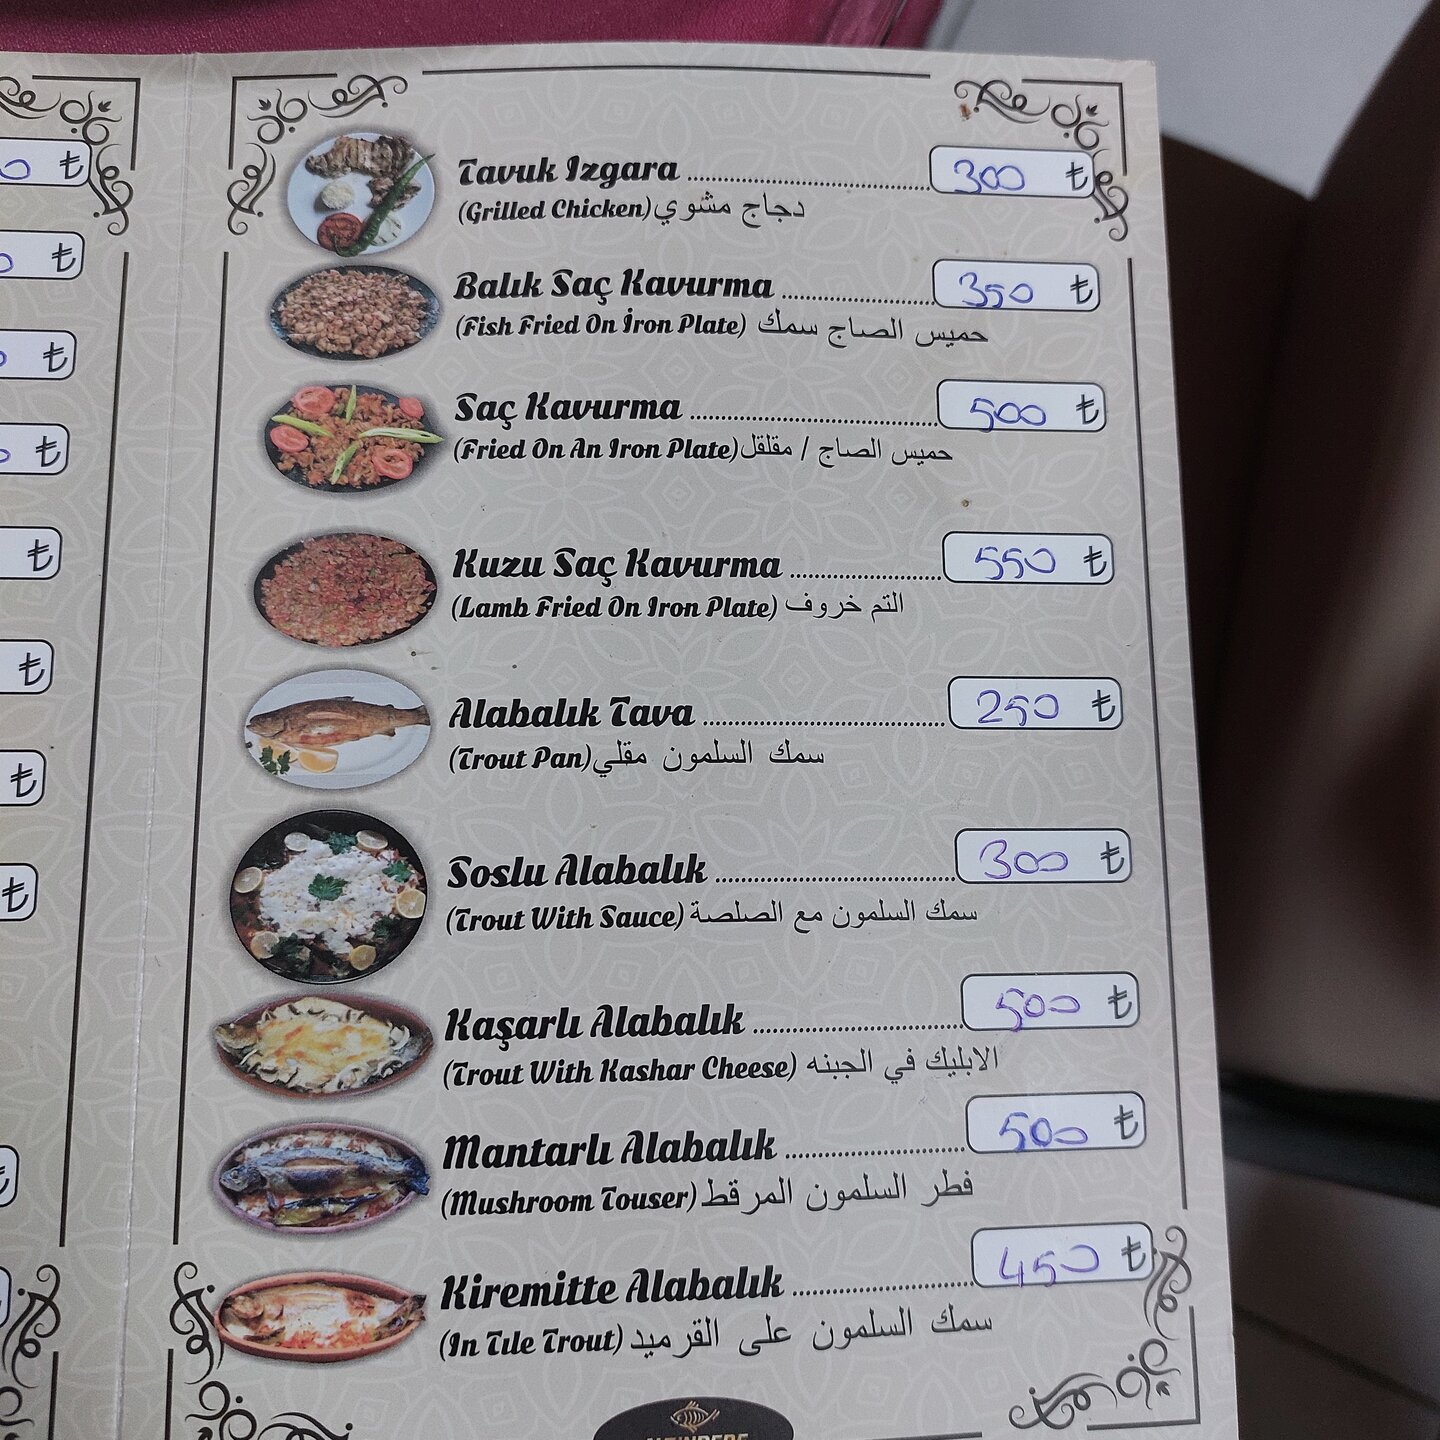 Tavuk Izgara ........ 300 ₺
(Grilled Chicken) دجاج مشوي
Balık Saç Kavurma ........ 350 ₺
(Fish Fried On İron Plate) حميس الصاج سمك
Saç Kavurma ........ 500 ₺
(Fried On An Iron Plate) حميس الصاج / مقلقل
Kuzu Saç Kavurma ........ 550 ₺
(Lamb Fried On Iron Plate) التم خروف
Alabalık Tava ........ 250 ₺
(Trout Pan) سمك السلمون مقلي
Soslu Alabalık ........ 300 ₺
(Trout With Sauce) سمك السلمون مع الصلصة
Kaşarlı Alabalık ........ 500 ₺
(Trout With Kashar Cheese) الابليك في الجبنه
Mantarlı Alabalık ........ 500 ₺
(Mushroom Touser) فطر السلمون المرقط
Kiremitte Alabalık ........ 450 ₺
(In Tıle Trout) سمك السلمون على القرميد